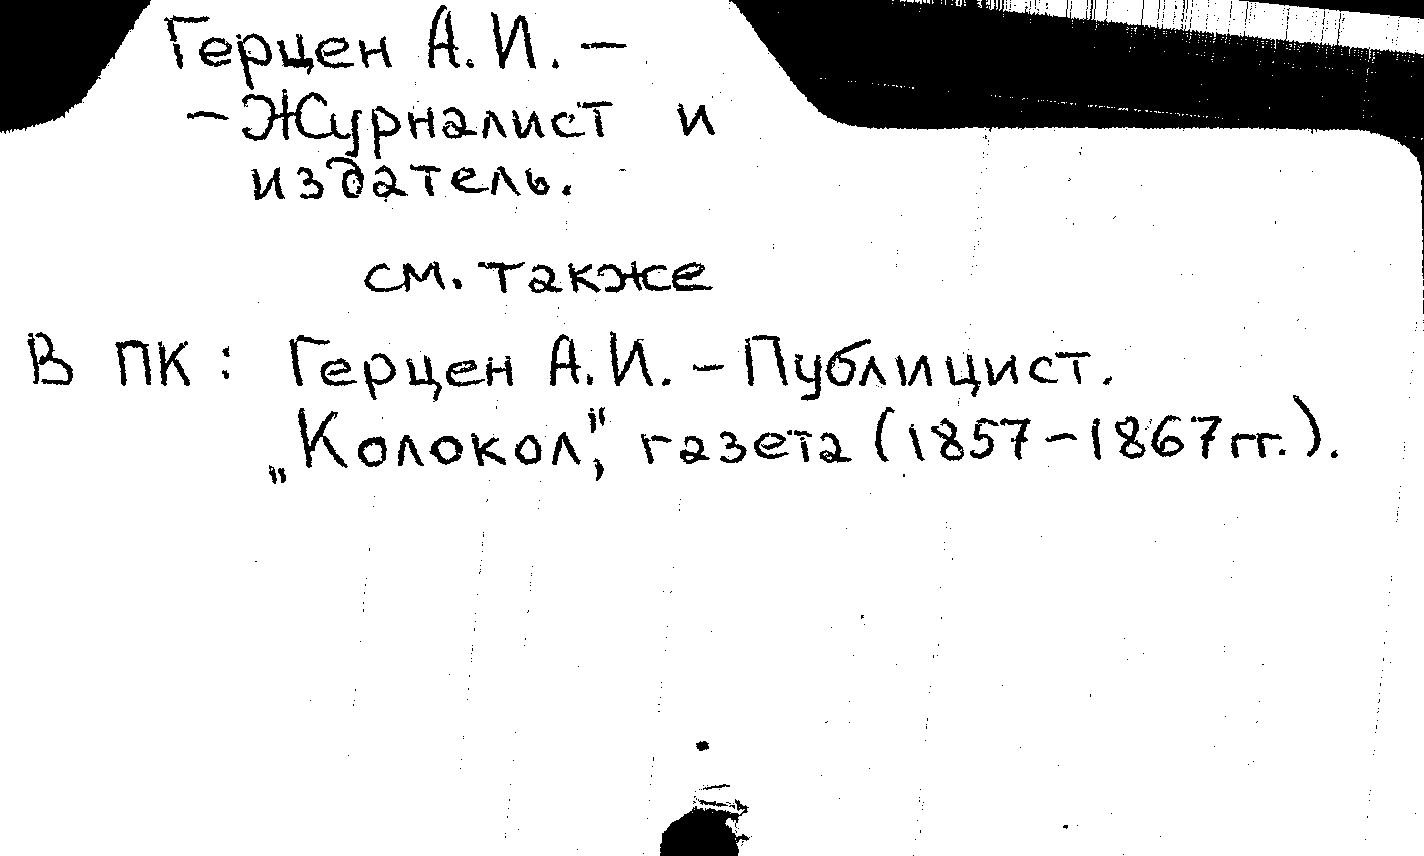 Герцен А. И. –
– Журналист и
издатель.
см. также
В ПК: Герцен А. И. – Публицист.
„Колокол", газета (1857–1867 гг.).